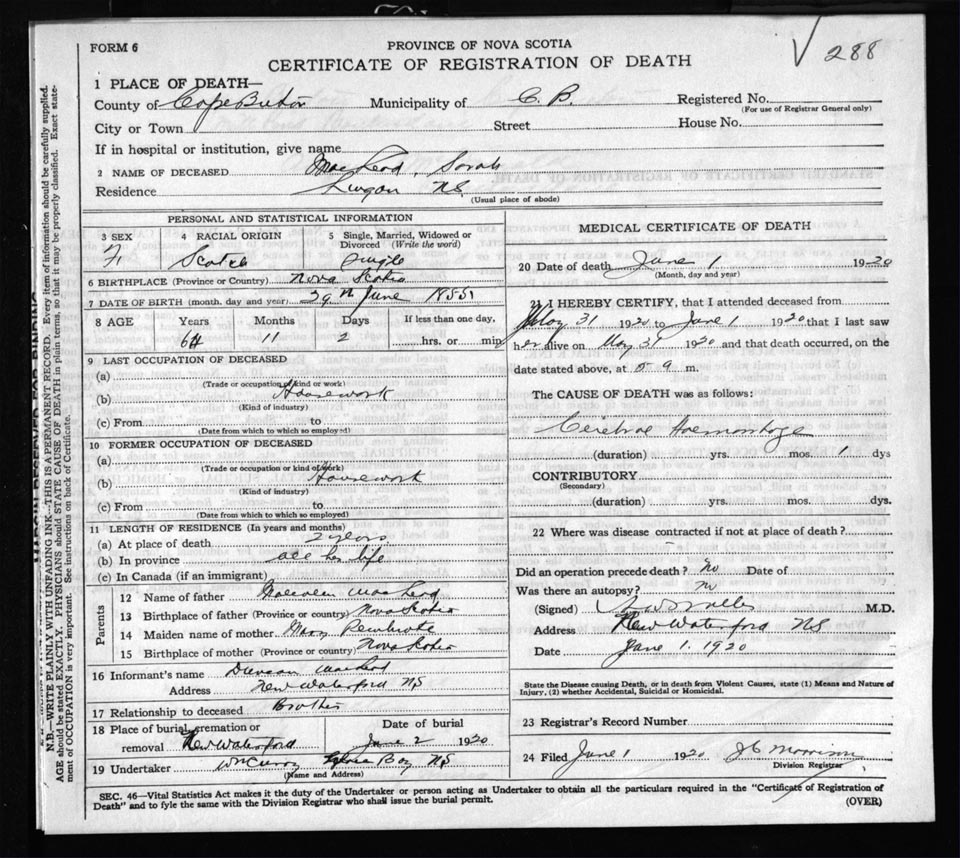 FORM 6
PROVINCE OF NOVA SCOTIA
288
CERTIFICATE OF REGISTRATION OF DEATH
1 PLACE OF DEATH—
County of Cape Breton Municipality of C. B. Registered No.
(For use of Registrar General only)
City or Town Street House No.
If in hospital or institution, give name
2 NAME OF DECEASED MacLeod, Sarah
Residence Lingan NS.
(Usual place of abode)
PERSONAL AND STATISTICAL INFORMATION
3 SEX 4 RACIAL ORIGIN 5 Single, Married, Widowed or
Divorced (Write the word)
F Scotch Single
6 BIRTHPLACE (Province or Country) Nova Scotia
7 DATE OF BIRTH (month, day and year) 29th June 1855
8 AGE Years Months Days If less than one day,
64 11 2 hrs. or min
9 LAST OCCUPATION OF DECEASED
(a)
(Trade or occupation of kind or work)
(b) Housework
(Kind of industry)
(c) From to
(Date from which to which so employed)
10 FORMER OCCUPATION OF DECEASED
(a)
(Trade or occupation or kind of work)
(b) Housework
(Kind of industry)
(c) From to
(Date from which to which so employed)
11 LENGTH OF RESIDENCE (In years and months)
(a) At place of death 2 years
(b) In province all her life
(c) In Canada (if an immigrant)
Parents
12 Name of father Malcolm MacLeod
13 Birthplace of father (Province or country) Nova Scotia
14 Maiden name of mother Mary
15 Birthplace of mother (Province or country) Nova Scotia
16 Informant's name Duncan MacLeod
Address New Waterford NS
17 Relationship to deceased Brother
18 Place of burial, cremation or Date of burial
removal New Waterford June 2 1920
19 Undertaker Wm Curry Glace Bay NS
(Name and Address)
MEDICAL CERTIFICATE OF DEATH
20 Date of death June 1 1920
(Month, day and year)
21 I HEREBY CERTIFY, that I attended deceased from
May 31 1920 to June 1 1920 that I last saw
her alive on May 31 1920 and that death occurred, on the
date stated above, at m.
The CAUSE OF DEATH was as follows:
Cerebral Haemorrhage
(duration) yrs. mos. 1 dys
CONTRIBUTORY
(Secondary)
(duration) yrs. mos. dys.
22 Where was disease contracted if not at place of death?
Did an operation precede death? no Date of
Was there an autopsy? no
(Signed) M.D.
Address New Waterford NS
Date June 1. 1920
State the Disease causing Death, or in death from Violent Causes, state (1) Means and Nature of
Injury, (2) whether Accidental, Suicidal or Homicidal.
23 Registrar's Record Number
24 Filed June 1 1920 J C Morrison
Division Registrar
SEC. 46—Vital Statistics Act makes it the duty of the Undertaker or person acting as Undertaker to obtain all the particulars required in the "Certificate of Registration of
Death" and to fyle the same with the Division Registrar who shall issue the burial permit. (OVER)
N.B.—WRITE PLAINLY WITH UNFADING INK—THIS IS A PERMANENT RECORD. Every item of information should be carefully supplied.
AGE should be stated EXACTLY. PHYSICIANS should STATE CAUSE OF DEATH in plain terms, so that it may be properly classified. Exact state-
ment of OCCUPATION is very important. See instructions on back of Certificate.